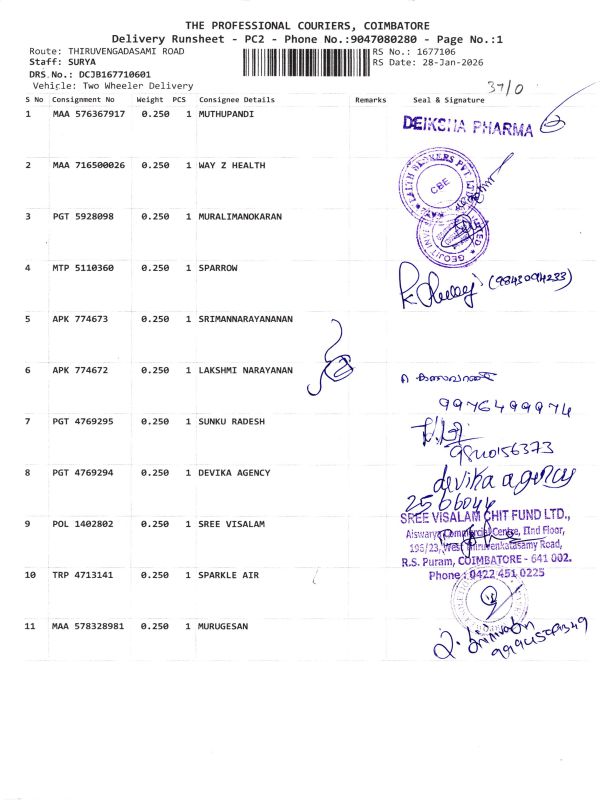 THE PROFESSIONAL COURIERS, COIMBATORE
Delivery Runsheet - PC2 - Phone No.:9047080280 - Page No.:1
Route: THIRUVENGADASAMI ROAD
RS No.: 1677106
Staff: SURYA
RS Date: 28-Jan-2026
DRS No.: DCJB167710601
Vehicle: Two Wheeler Delivery
37/0
S No Consignment No Weight PCS Consignee Details Remarks Seal & Signature
1 MAA 576367917 0.250 1 MUTHUPANDI
DEIKSHA PHARMA
2 MAA 716500026 0.250 1 WAY Z HEALTH
CBE
3 PGT 5928098 0.250 1 MURALIMANOKARAN
4 MTP 5110360 0.250 1 SPARROW
(9843094233)
5 APK 774673 0.250 1 SRIMANNARAYANANAN
6 APK 774672 0.250 1 LAKSHMI NARAYANAN
9976499974
7 PGT 4769295 0.250 1 SUNKU RADESH
9840156373
8 PGT 4769294 0.250 1 DEVIKA AGENCY
devika agency
2566044
9 POL 1402802 0.250 1 SREE VISALAM
SREE VISALAM CHIT FUND LTD.,
Aiswarya Commercial Centre, IInd Floor,
195/23, West Thiruvenkatasamy Road,
R.S. Puram, COIMBATORE - 641 002.
Phone : 0422 451 0225
10 TRP 4713141 0.250 1 SPARKLE AIR
11 MAA 578328981 0.250 1 MURUGESAN